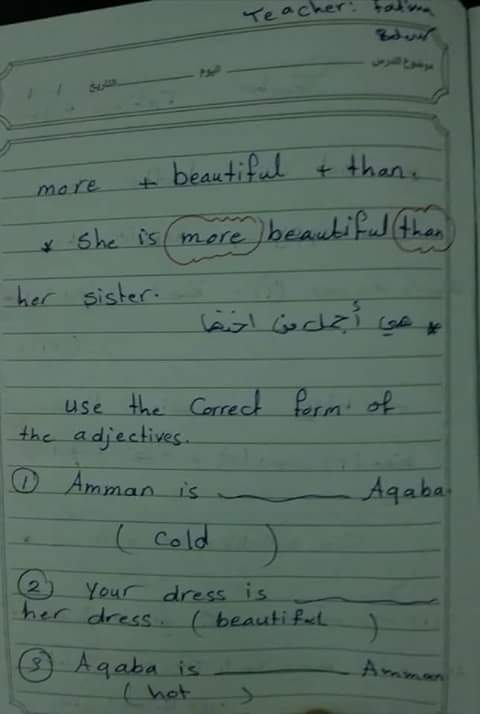 Teacher: Fatima
موضوع الدرس ________ اليوم ________ التاريخ / /
more + beautiful + than.
* she is more beautiful than
her sister.
* هي أجمل من اختها
use the Correct form of
the adjectives.
① Amman is ________ Aqaba.
( Cold )
② Your dress is ________
her dress. ( beautiful )
③ Aqaba is ________ Amman
( hot )